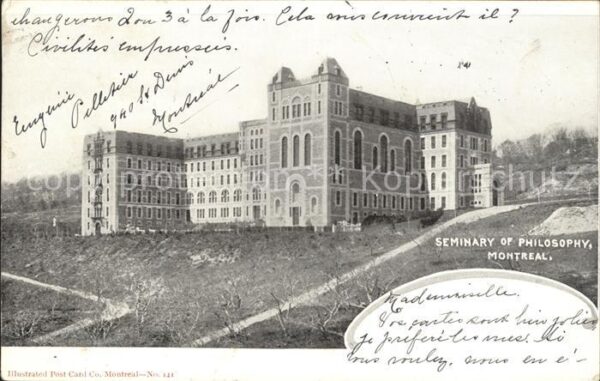 Mademoiselle.
Vos cartes sont bien jolies
je préfère les vues. Si
vous voulez, nous en é-
changerons 2 ou 3 à la fois. Cela vous convient il ?
Civilités empressées.
Eugénie Pelletier
940 St Denis
Montréal
SEMINARY OF PHILOSOPHY,
MONTREAL.
Illustrated Post Card Co. Montreal—No. 141
Copyright